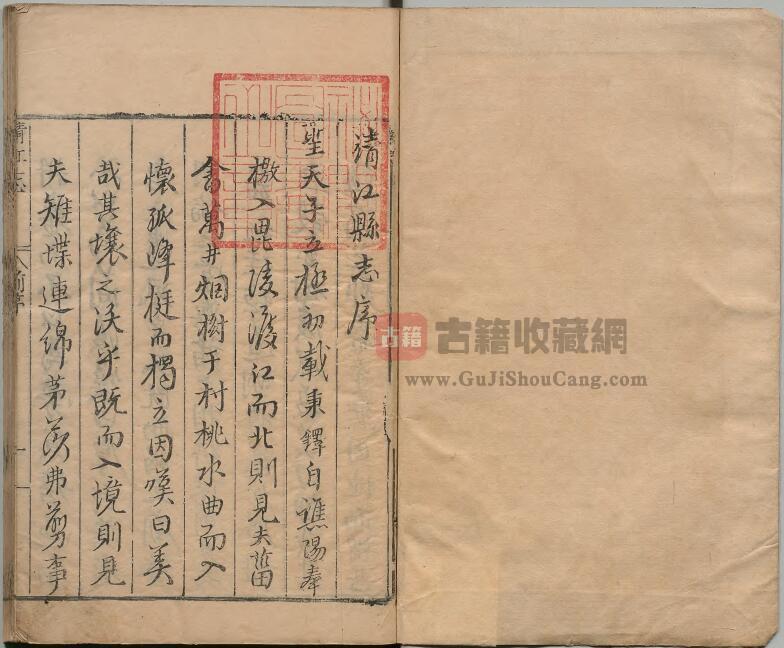 靖江縣志序
聖天子立極初載秉鐸自譙陽奉
檄入毘陵渡江而北則見夫菑
畬萬井烟樹千村桃水曲而入
懷孤峰挺而獨立因嘆曰美
哉其壤之沃乎既而入境則見
夫雉堞連綿茅茨弗剪事
靖江志
前序
古籍
古籍收藏網
www.GuJiShouCang.com